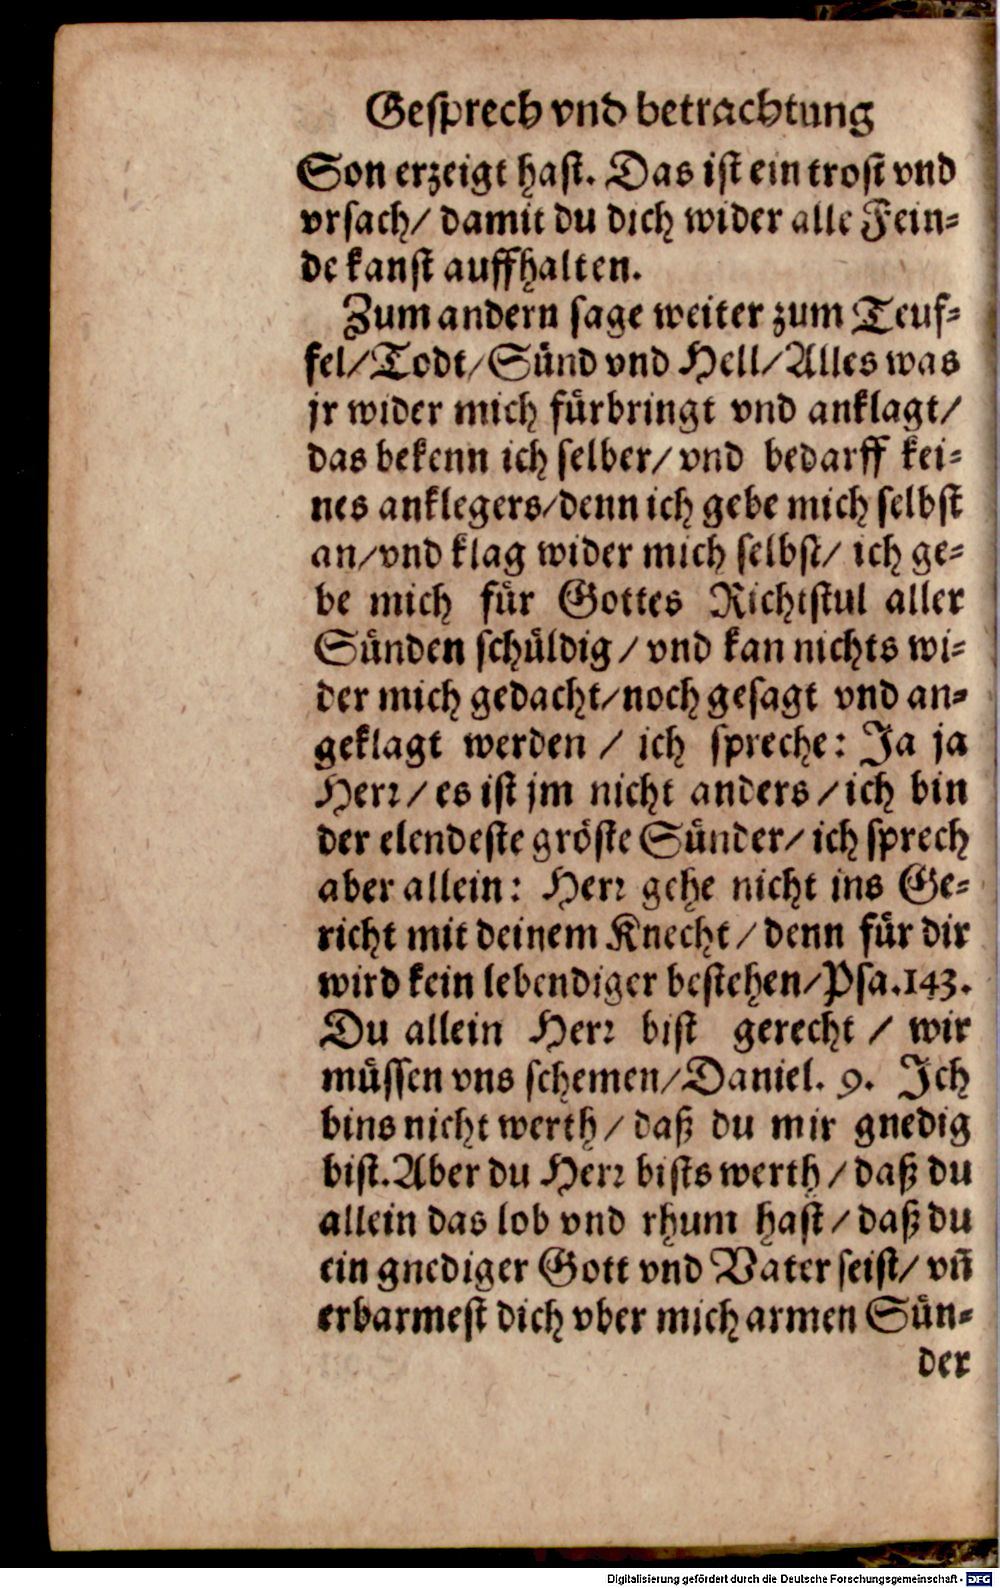 Gesprech vnd betrachtung
Son erzeigt hast. Das ist ein trost vnd
vrsach/ damit du dich wider alle Fein⸗
de kanst auffhalten.
Zum andern sage weiter zum Teuf⸗
fel/Todt/Sünd vnd Hell/Alles was
jr wider mich fürbringt vnd anklagt/
das bekenn ich selber/ vnd bedarff kei⸗
nes anklegers/denn ich gebe mich selbst
an/vnd klag wider mich selbst/ ich ge⸗
be mich für Gottes Richtstul aller
Sünden schüldig / vnd kan nichts wi⸗
der mich gedacht/noch gesagt vnd an⸗
geklagt werden / ich spreche: Ja ja
Herr/ es ist jm nicht anders / ich bin
der elendeste gröste Sünder/ ich sprech
aber allein: Herr gehe nicht ins Ge⸗
richt mit deinem Knecht / denn für dir
wird kein lebendiger bestehen/Psa.143.
Du allein Herr bist gerecht / wir
müssen vns schemen/Daniel. 9. Ich
bins nicht werth / daß du mir gnedig
bist. Aber du Herr bists werth / daß du
allein das lob vnd rhum hast / daß du
ein gnediger Gott vnd Vater seist/ vñ
erbarmest dich vber mich armen Sün⸗
der
Digitalisierung gefördert durch die Deutsche Forschungsgemeinschaft - DFG